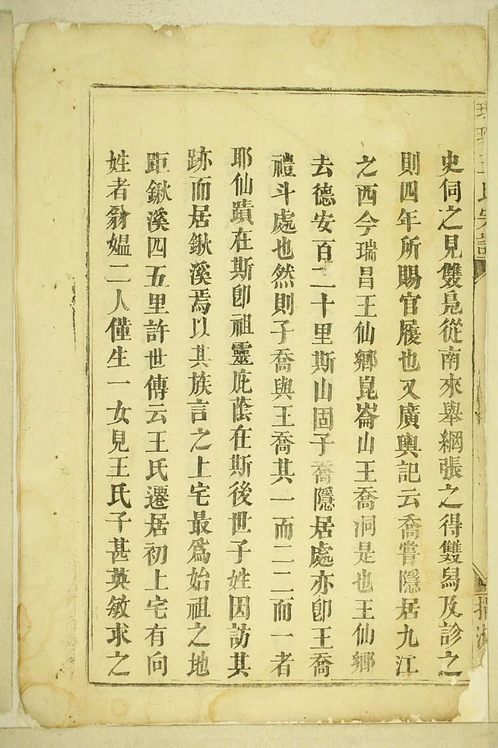 史伺之見雙鳧從南來舉網張之得雙舄及診之
則四年所賜官履也又廣輿記云喬嘗隱居九江
之西今瑞昌王仙鄉崑崙山王喬洞是也王仙鄉
去德安百二十里斯山固子喬隱居處亦卽王喬
禮斗處也然則子喬與王喬其一而二二而一者
耶仙蹟在斯卽祖靈庇蔭在斯後世子姓因訪其
跡而居鍬溪焉以其族言之上宅最爲始祖之地
距鍬溪四五里許世傳云王氏遷居初上宅有向
姓者翁媼二人僅生一女見王氏子甚英敏求之